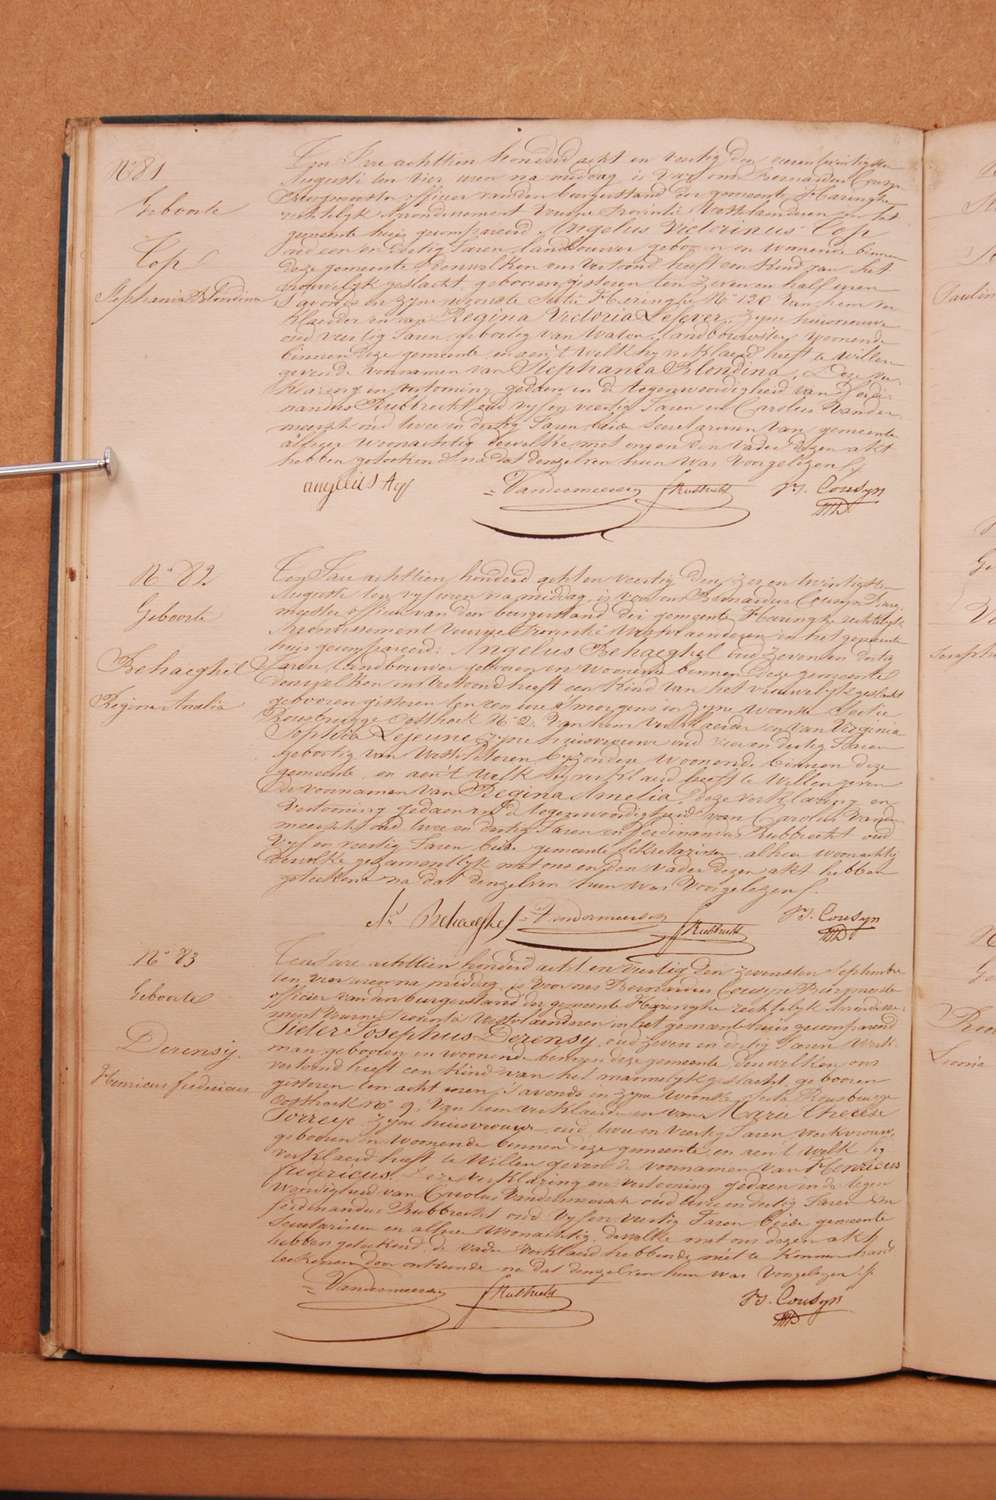 N° 81
Geboorte
Top
Stephania Blondina
Ten Jare achttien honderd acht en veertig den
Augusti ten vier uren na middag is voor ons Bernardus Cousyn
Burgemeester officier van den burgerstand der gemeente Haringhe
rechtelyk Arondissement Veurne Provintie Westvlaenderen in het
gemeente huis gecompareerd Angelus Victorinus Top
oud een en dertig Jaren landbouwer geboren en woonende binnen
deze gemeente, denwelken ons vertoond heeft een kind van het
vrouwelyk geslacht, geboren gisteren ten zeven en half uren
s'avonds in zyne woonste Sectie Haringhe N° 120 van hem ver
klaerder en van Regina Victoria Lefever, zyne huisvrouwe
oud veertig Jaren, geboortig van Watou, landbouwster, woonende
binnen deze gemeente en aen 't welk hy verklaerd heeft te willen
geven de voornamen van Stephania Blondina. Deze ver
klaring en vertooning gedaen in de tegenwoordigheid van Ferdi
nandus Rubbrecht oud vyf en veertig Jaren en Carolus Vander
meersch oud twee en dertig Jaren beide Secretarissen van gemeente
alhier woonachtig dewelke met ons en den vader dezen akt
hebben geteekend na dat denzelven hun was voorgelezen
angelus top Vandermeersch F Rubbrecht B. Cousyn
N° 82
Geboorte
Behaeghel
Regina Amelia
Ten Jare achttien honderd acht en veertig den zeven twintigsten
Augusti ten vyf uren na middag, is voor ons Bernardus Cousyn Burge
meester officier van den burgerstand der gemeente Haringhe rechtelyk
Arondissement Veurne Provintie Westvlaenderen in het gemeente
huis gecompareerd: Angelus Behaeghel oud zeven en dertig
Jaren Landbouwer geboren en woonende binnen deze gemeente
denwelken ons vertoond heeft een kind van het vrouwelyk geslacht
geboren gisteren ten een ure s'morgens in zyne woonste Sectie
Rousbrugge Oosthoek N° 2, van hem verklaerder en van Virginia
Sophia Lejeune zyne huisvrouwe oud vier en dertig Jaren
geboortig van byzondere woonende binnen deze
gemeente en aen 't welk hy verklaerd heeft te willen geven
de voornamen van Regina Amelia. Deze verklaring en
vertooning gedaen in de tegenwoordigheid van Carolus Vander
meersch oud twee en dertig Jaren en Ferdinandus Rubbrecht oud
vyf en veertig Jaren beide gemeente Sekretarissen alhier woonachtig
dewelke gezamentlyk met ons en den vader dezen akt hebben
geteekend na dat denzelven hun was voorgelezen
As Behaeghel Vandermeersch F Rubbrecht B. Cousyn
N° 83
Geboorte
Derensy.
Henricus fredericus
Ten Jare achttien honderd acht en veertig den zevensten September
ten vier uren na middag, is voor ons Bernardus Cousyn Burgemeester
officier van den burgerstand der gemeente Haringhe rechtelyk Arondisse-
ment Veurne Provintie Westvlaenderen in het gemeente huis gecompareerd
Pieter Josephus Derensy, oud zeven en dertig Jaren werk
man geboren en woonende binnen deze gemeente, denwelken ons
vertoond heeft een kind van het mannelyk geslacht, geboren
gisteren ten acht uren s'avonds in zyne woonste Sectie Rousbrugge
Oosthoek N° 9, van hem verklaerder en van Marie Therese
Torreye zyne huisvrouwe, oud twee en veertig Jaren, werkvrouw,
geboren en woonende binnen deze gemeente, en aen 't welk hy
verklaerd heeft te willen geven de voornamen van Henricus
fredericus. Deze verklaring en vertooning gedaen in de tegen
woordigheid van Carolus Vandermeersch oud twee en dertig Jaren en
ferdinandus Rubbrecht oud vyf en veertig Jaren beide gemeente
Secretarissen en alhier woonachtig, dewelke met ons dezen akt
hebben geteekend, de vader verklaerd hebbende niet te kunnen hand
teekenen door onkunde na dat denzelven hun was voorgelezen
Vandermeersch F Rubbrecht B. Cousyn